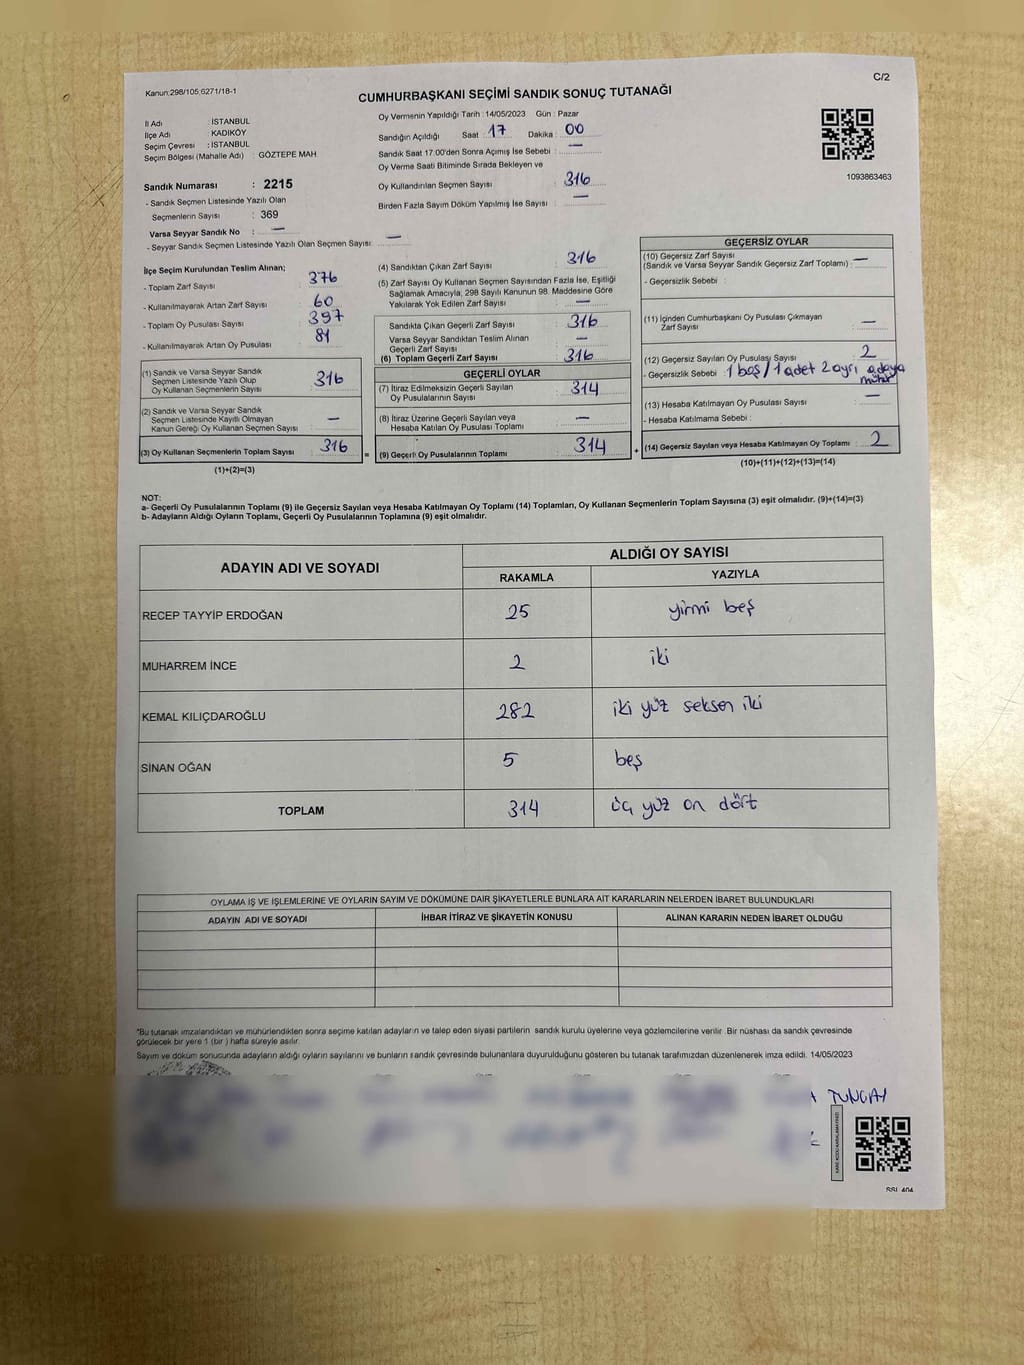 C/2
Kanun:298/105,6271/18-1
CUMHURBAŞKANI SEÇİMİ SANDIK SONUÇ TUTANAĞI
İl Adı : İSTANBUL
İlçe Adı : KADIKÖY
Seçim Çevresi : İSTANBUL
Seçim Bölgesi (Mahalle Adı) : GÖZTEPE MAH
Sandık Numarası : 2215
- Sandık Seçmen Listesinde Yazılı Olan
Seçmenlerin Sayısı : 369
Varsa Seyyar Sandık No : —
- Seyyar Sandık Seçmen Listesinde Yazılı Olan Seçmen Sayısı: —
Oy Vermenin Yapıldığı Tarih : 14/05/2023 Gün : Pazar
Sandığın Açıldığı Saat : 17 Dakika : 00
Sandık Saat 17.00'den Sonra Açımış İse Sebebi : —
Oy Verme Saati Bitiminde Sırada Bekleyen ve
Oy Kullandırılan Seçmen Sayısı : 316
Birden Fazla Sayım Döküm Yapılmış İse Sayısı : —
1093863463
İlçe Seçim Kurulundan Teslim Alınan;
- Toplam Zarf Sayısı : 376
- Kullanılmayarak Artan Zarf Sayısı : 60
- Toplam Oy Pusulası Sayısı : 397
- Kullanılmayarak Artan Oy Pusulası : 81
(1) Sandık ve Varsa Seyyar Sandık
Seçmen Listesinde Yazılı Olup
Oy Kullanan Seçmenlerin Sayısı : 316
(2) Sandık ve Varsa Seyyar Sandık
Seçmen Listesinde Kayıtlı Olmayan
Kanun Gereği Oy Kullanan Seçmen Sayısı : —
(3) Oy Kullanan Seçmenlerin Toplam Sayısı : 316
(1)+(2)=(3)
=
(4) Sandıktan Çıkan Zarf Sayısı : 316
(5) Zarf Sayısı Oy Kullanan Seçmen Sayısından Fazla İse, Eşitliği
Sağlamak Amacıyla, 298 Sayılı Kanunun 98. Maddesine Göre
Yakılarak Yok Edilen Zarf Sayısı : —
Sandıkta Çıkan Geçerli Zarf Sayısı : 316
Varsa Seyyar Sandıktan Teslim Alınan
Geçerli Zarf Sayısı : —
(6) Toplam Geçerli Zarf Sayısı : 316
GEÇERLİ OYLAR
(7) İtiraz Edilmeksizin Geçerli Sayılan
Oy Pusulalarının Sayısı : 314
(8) İtiraz Üzerine Geçerli Sayılan veya
Hesaba Katılan Oy Pusulası Toplamı : —
(9) Geçerli Oy Pusulalarının Toplamı : 314
+
GEÇERSİZ OYLAR
(10) Geçersiz Zarf Sayısı
(Sandık ve Varsa Seyyar Sandık Geçersiz Zarf Toplamı) : —
- Geçersizlik Sebebi :
(11) İçinden Cumhurbaşkanı Oy Pusulası Çıkmayan
Zarf Sayısı : —
(12) Geçersiz Sayılan Oy Pusulası Sayısı : 2
- Geçersizlik Sebebi : 1 boş / 1 adet 2 ayrı adaya
mühür
(13) Hesaba Katılmayan Oy Pusulası Sayısı : —
- Hesaba Katılmama Sebebi :
(14) Geçersiz Sayılan veya Hesaba Katılmayan Oy Toplamı : 2
(10)+(11)+(12)+(13)=(14)
NOT:
a- Geçerli Oy Pusulalarının Toplamı (9) ile Geçersiz Sayılan veya Hesaba Katılmayan Oy Toplamı (14) Toplamları, Oy Kullanan Seçmenlerin Toplam Sayısına (3) eşit olmalıdır. (9)+(14)=(3)
b- Adayların Aldığı Oyların Toplamı, Geçerli Oy Pusulalarının Toplamına (9) eşit olmalıdır.
ADAYIN ADI VE SOYADI
ALDIĞI OY SAYISI
RAKAMLA YAZIYLA
RECEP TAYYİP ERDOĞAN 25 yirmi beş
MUHARREM İNCE 2 iki
KEMAL KILIÇDAROĞLU 282 iki yüz seksen iki
SİNAN OĞAN 5 beş
TOPLAM 314 üç yüz on dört
OYLAMA İŞ VE İŞLEMLERİNE VE OYLARIN SAYIM VE DÖKÜMÜNE DAİR ŞİKAYETLERLE BUNLARA AİT KARARLARIN NELERDEN İBARET BULUNDUKLARI
ADAYIN ADI VE SOYADI İHBAR İTİRAZ VE ŞİKAYETİN KONUSU ALINAN KARARIN NEDEN İBARET OLDUĞU
*Bu tutanak imzalandıktan ve mühürlendikten sonra seçime katılan adayların ve talep eden siyasi partilerin sandık kurulu üyelerine veya gözlemcilerine verilir .Bir nüshası da sandık çevresinde
görülecek bir yere 1 (bir ) hafta süreyle asılır.
Sayım ve döküm sonucunda adayların aldığı oyların sayılarını ve bunların sandık çevresinde bulunanlara duyurulduğunu gösteren bu tutanak tarafımızdan düzenlenerek imza edildi. 14/05/2023
TUNCAY